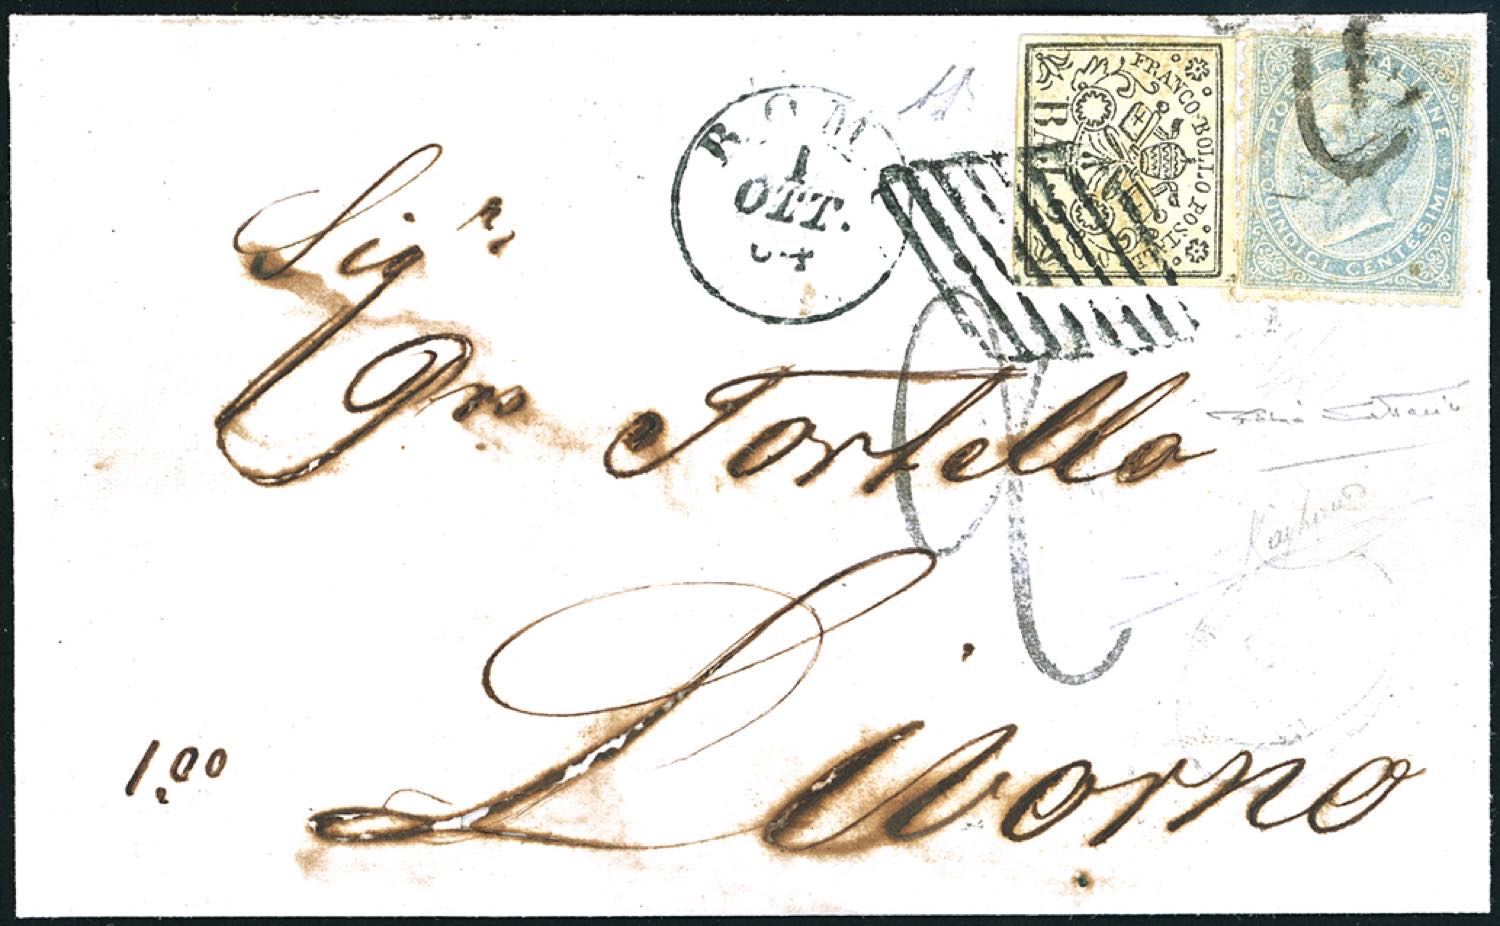 ROM
1
OTT.
64
FRANCO-BOLLO POSTALE
BAJ
POSTE ITALIANE
QUINDICI CENTESIMI
Sigr.
Tortella
Livorno
1.00